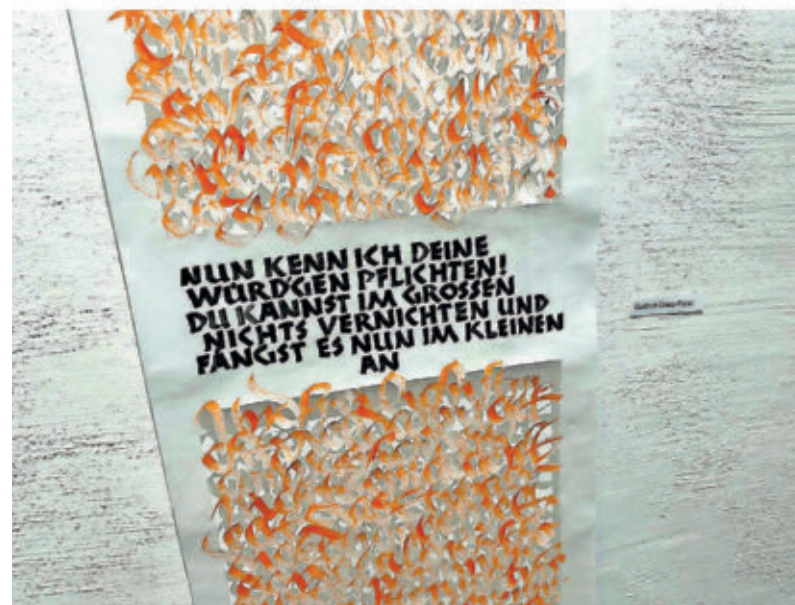 NUN KENN ICH DEINE
WÜRD'GEN PFLICHTEN!
DU KANNST IM GROSSEN
NICHTS VERNICHTEN UND
FÄNGST ES NUN IM KLEINEN
AN